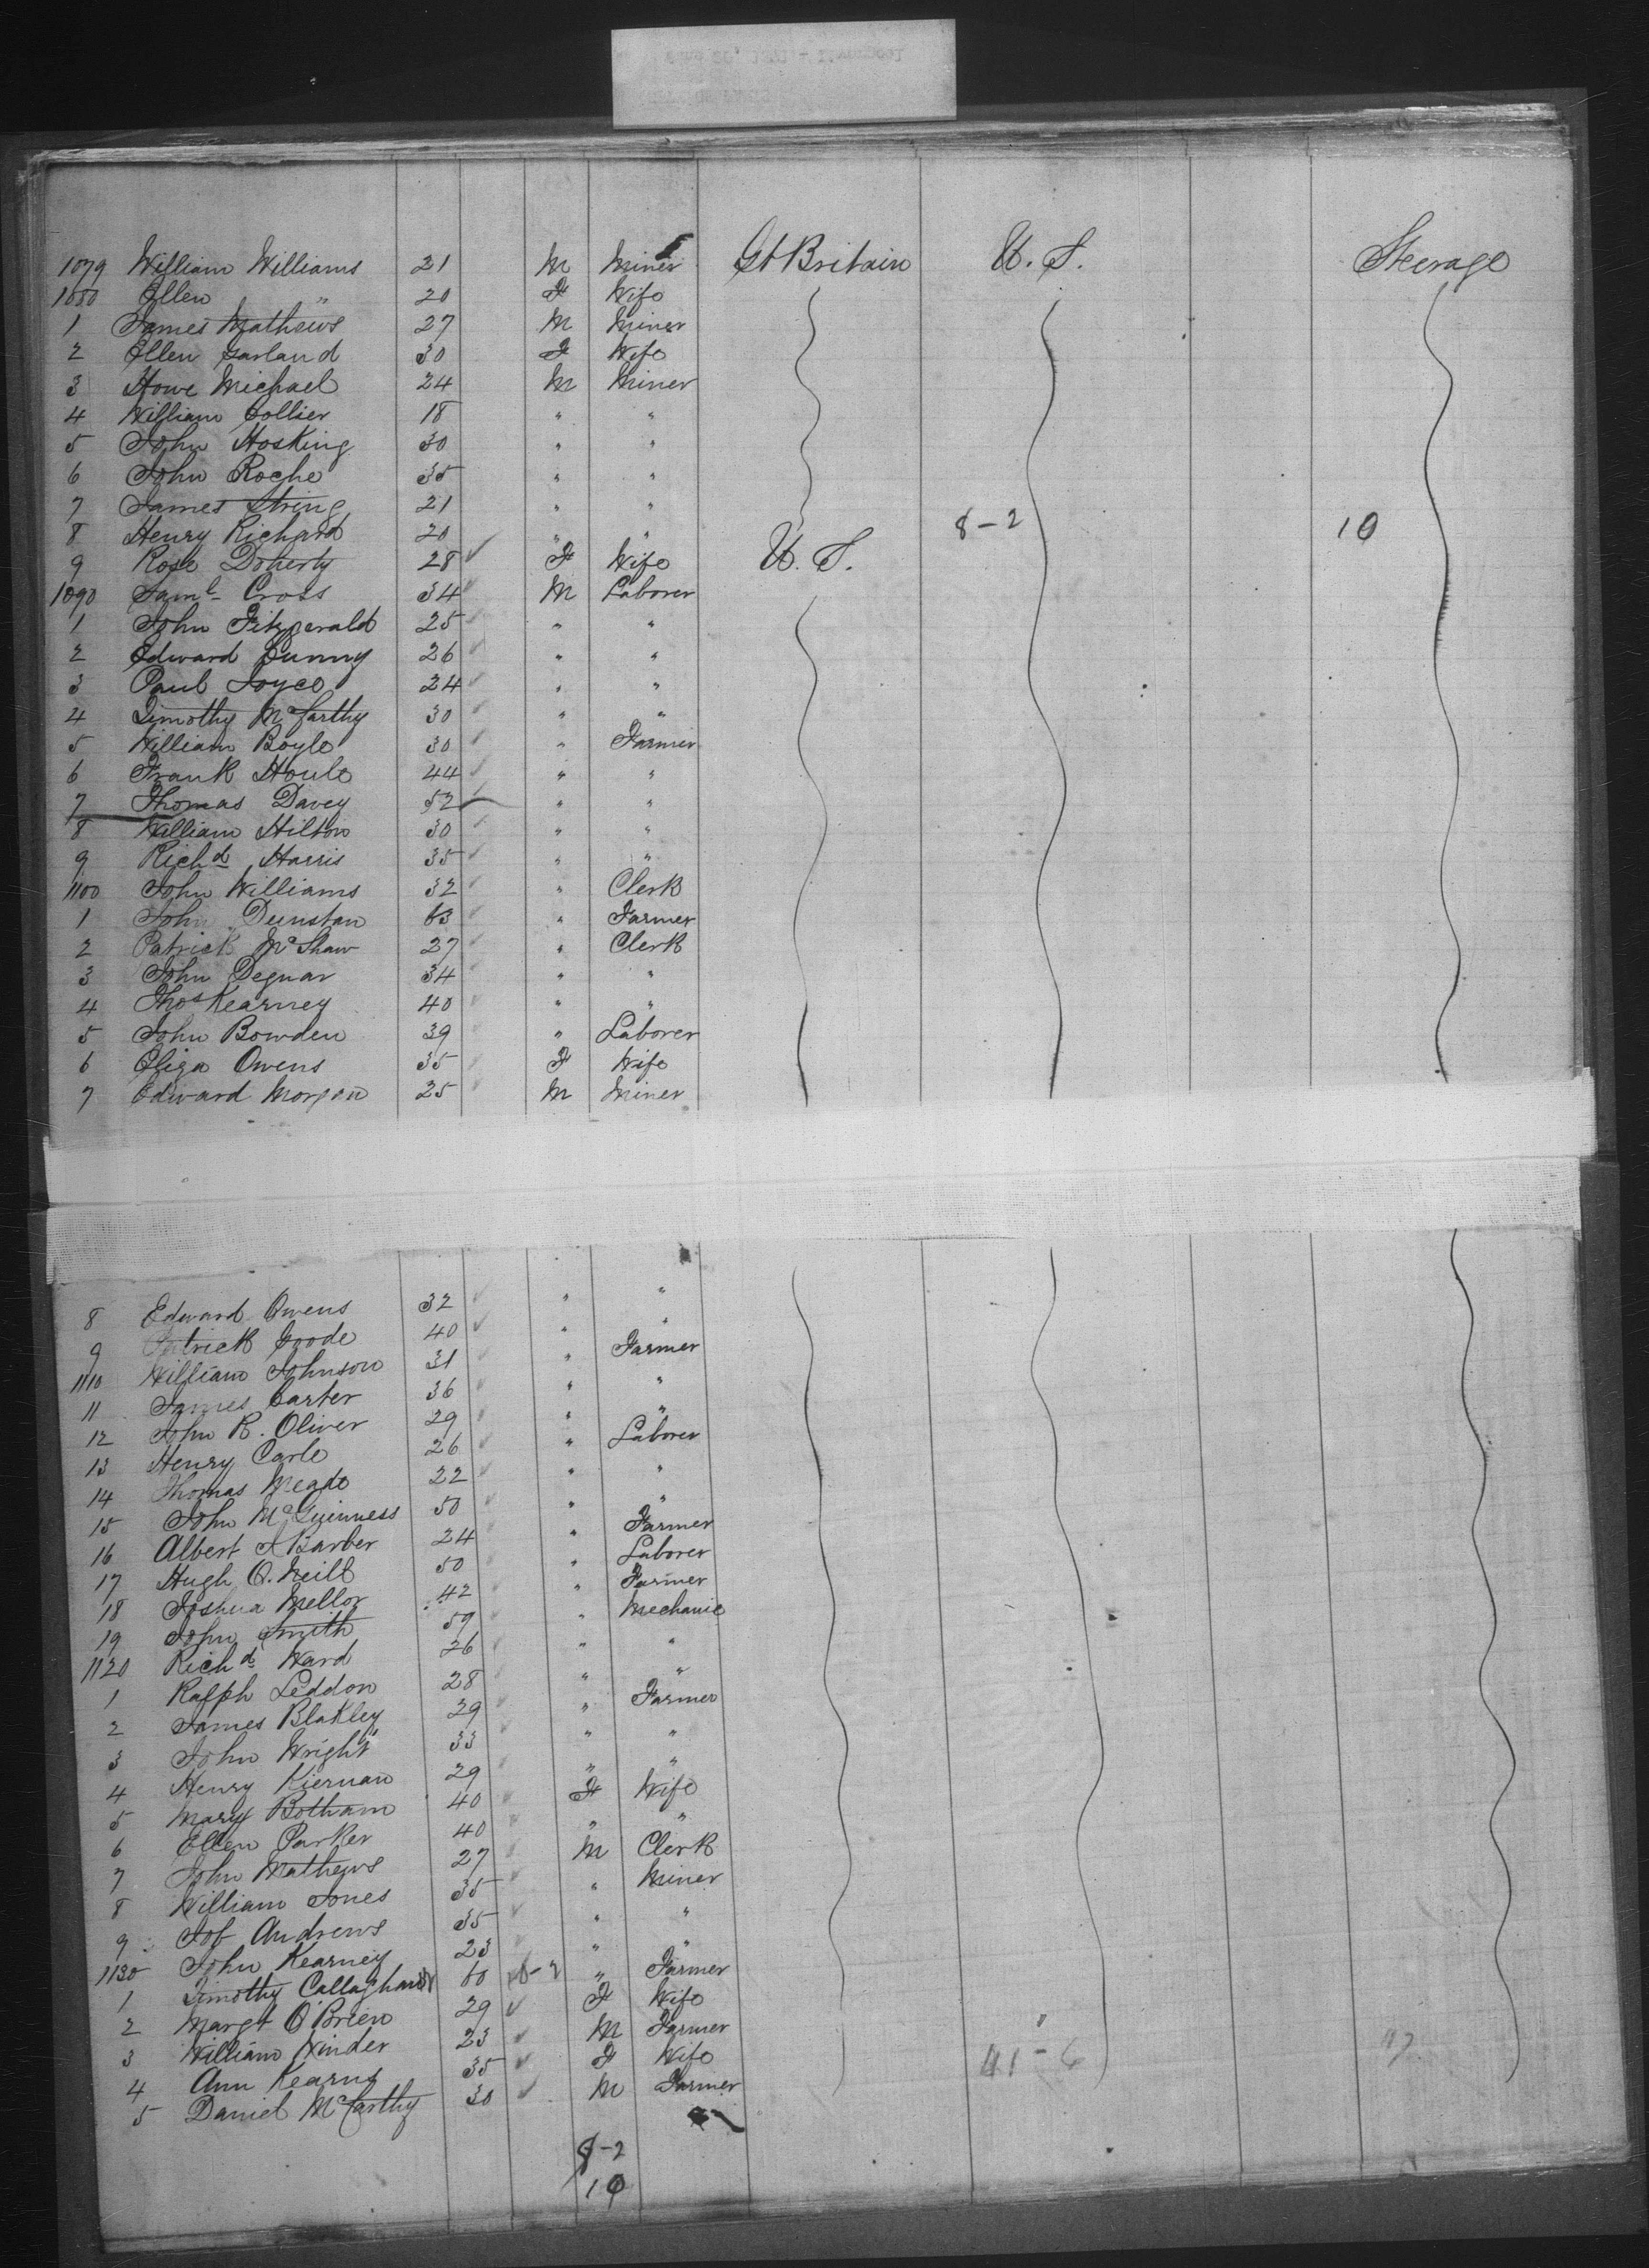 1079 William Williams 21 M Miner Gt Britain U. S. Steerage
1080 Ellen " 20 F Wife
1 James Mathews 27 M Miner
2 Ellen Garland 30 F Wife
3 Howe Michael 24 M Miner
4 William Collier 18 " "
5 John Hosking 30 " "
6 John Roche 35 " "
7 James String 21 " "
8 Henry Richard 20 " " 8-2 10
9 Rose Doherty 28 F Wife U. S.
1090 Saml Cross 34 M Laborer
1 John Fitzgerald 25 " "
2 Edward Cunny 26 " "
3 Paul Joyce 24 " "
4 Timothy McCarthy 30 " "
5 William Boyle 30 " Farmer
6 Frank Houle 44 " "
7 Thomas Davey 52 " "
8 William Hilton 30 " "
9 Richd Harris 35 " "
1100 John Williams 32 " Clerk
1 John Dunstan 63 " Farmer
2 Patrick McShaw 27 " Clerk
3 John Degnar 34 " "
4 Thos Kearney 40 " "
5 John Bowden 39 " Laborer
6 Eliza Owens 35 F Wife
7 Edward Morgan 25 M Miner
8 Edward Owens 32 " "
9 Patrick Goode 40 " "
1110 William Johnson 31 " Farmer
11 James Carter 36 " "
12 John R. Oliver 29 " "
13 Henry Carle 26 " Laborer
14 Thomas Meade 22 " "
15 John McGuinness 50 " "
16 Albert A Barber 24 " Farmer
17 Hugh O.Neill 50 " Laborer
18 Joshua Mellor 42 " Farmer
19 John Smith 59 " Mechanic
1120 Richd Ward 26 " "
1 Ralph Leddon 28 " "
2 James Blakley 29 " Farmer
3 John Wright 33 " "
4 Henry Kiernan 29 " "
5 Mary Botham 40 F Wife
6 Ellen Parker 40 " "
7 John Mathews 27 M Clerk
8 William Jones 35 " Miner
9 Job Andrews 35 " "
1130 John Kearney 23 " "
1 Timothy Callaghan 60 8-2 " Farmer
2 Margt O'Brien 29 F Wife
3 William Winder 23 M Farmer
4 Ann Kearns 35 F Wife 41-6 17
5 Daniel McCarthy 30 M Farmer
8-2
10